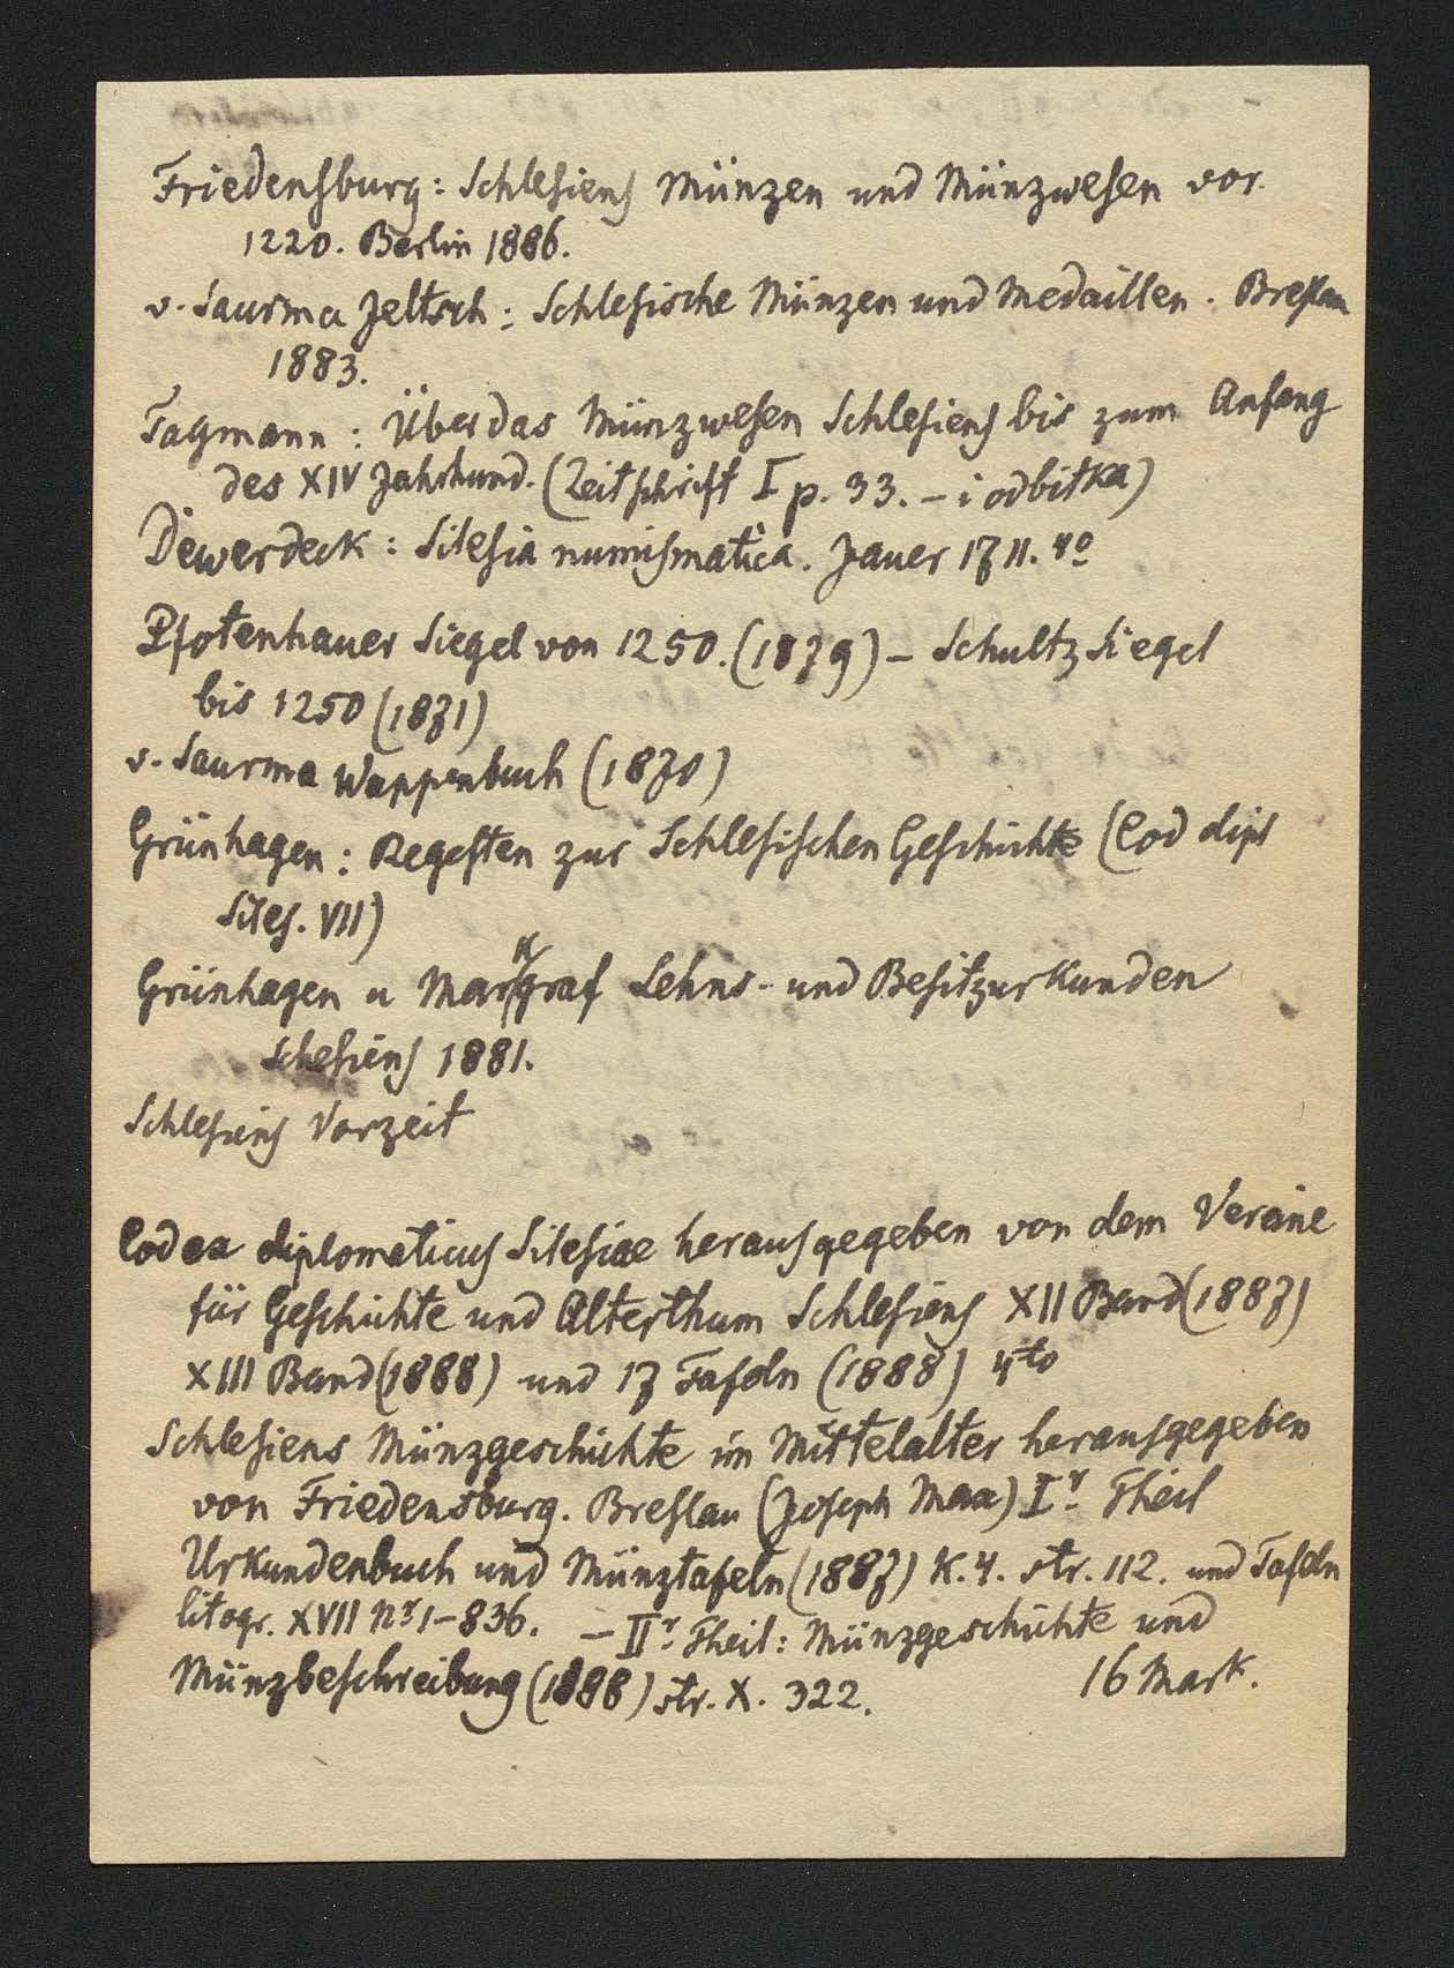 Friedensburg: Schlesiens Münzen und Münzwesen vor.
1220. Berlin 1886.
v. Saurma Jeltsch: Schlesische Münzen und Medaillen. Breslau
1883.
Tagmann: Über das Münzwesen Schlesiens bis zum Anfang
des XIV Jahrhund. (Zeitschrift I p. 33. – i odbitka)
Dewerdeck: Silesia numismatica. Jauer 1711. 4º
Pfotenhauer Siegel von 1250. (1879) – Schultz Siegel
bis 1250 (1871)
v. Saurma Wappenbuch (1870)
Grünhagen: Regesten zur Schlesischen Geschichte (Cod dipl
Siles. VII)
Grünhagen u Markgraf Lehns- und Besitzurkunden
Schesiens 1881.
Schlesiens Vorzeit
Codex diplomaticus Silesiae herausgegeben von dem Vereine
für Geschichte und Alterthum Schlesiens XII Band (1887)
XIII Band (1888) und 17 Tafeln (1888) 4to
Schlesiens Münzgeschichte im Mittelalter herausgegeben
von Friedensburg. Breslau (Joseph Max) Ir Theil
Urkundenbuch und Münztafeln (1887) K. 4. str. 112. und Tafeln
litogr. XVII Nr 1–836. – IIr Theil: Münzgeschichte und
Münzbeschreibung (1888) str. X. 322. 16 Mark.